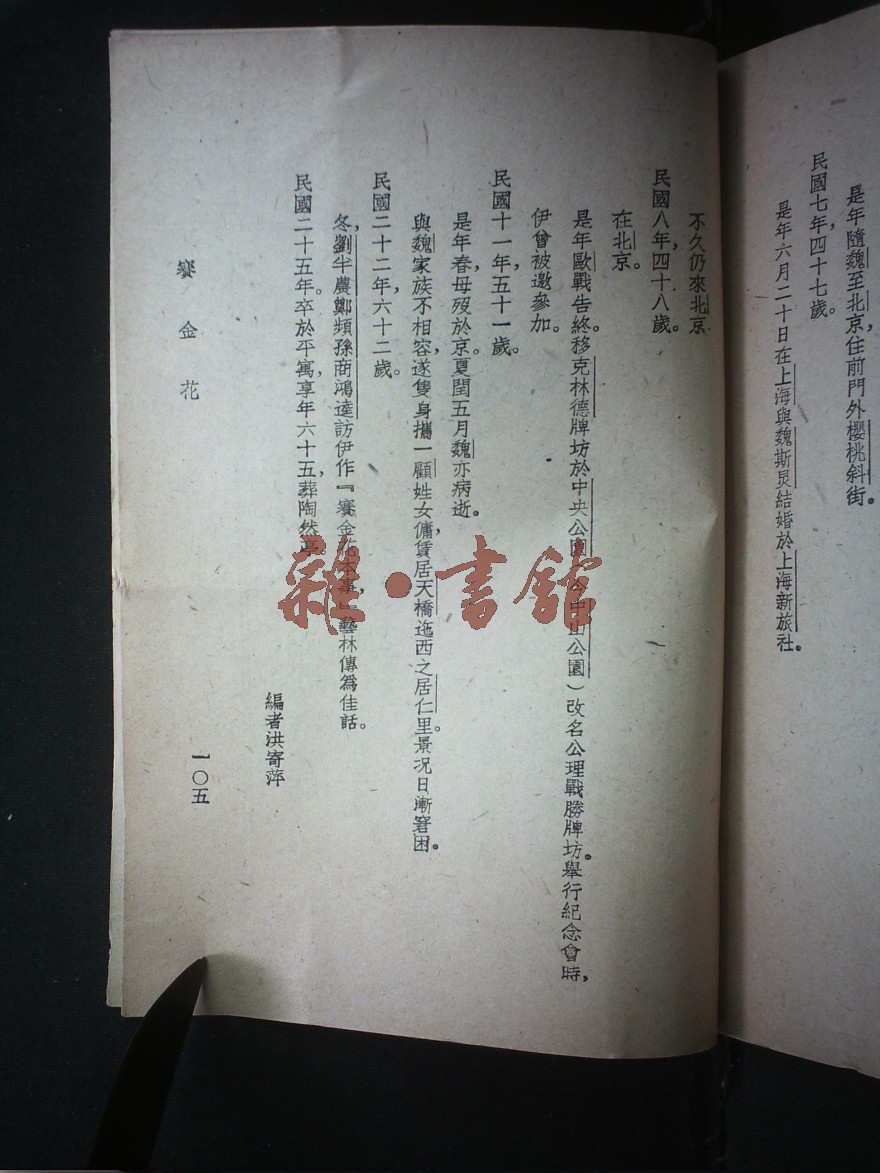 是年隨魏至北京，住前門外櫻桃斜街。
民國七年，四十七歲。
是年六月二十日在上海與魏斯炅結婚於上海新旅社。
不久仍來北京
民國八年，四十八歲。
在北京。
是年歐戰告終。移克林德牌坊於中央公園（今中山公園）改名公理戰勝牌坊。舉行紀念會時，
伊曾被邀參加。
民國十一年，五十一歲。
是年春，母歿於京。夏閏五月魏亦病逝。
與魏家族不相容，遂隻身攜一顧姓女傭，賃居天橋迤西之居仁里。景况日漸窘困。
民國二十二年，六十二歲。
冬，劉半農鄭頻孫商鴻逵訪伊作『賽金花本事』，藝林傳爲佳話。
民國二十五年。卒於平寓，享年六十五，葬陶然亭。
編者洪寄萍
賽金花
一〇五
雜·書館